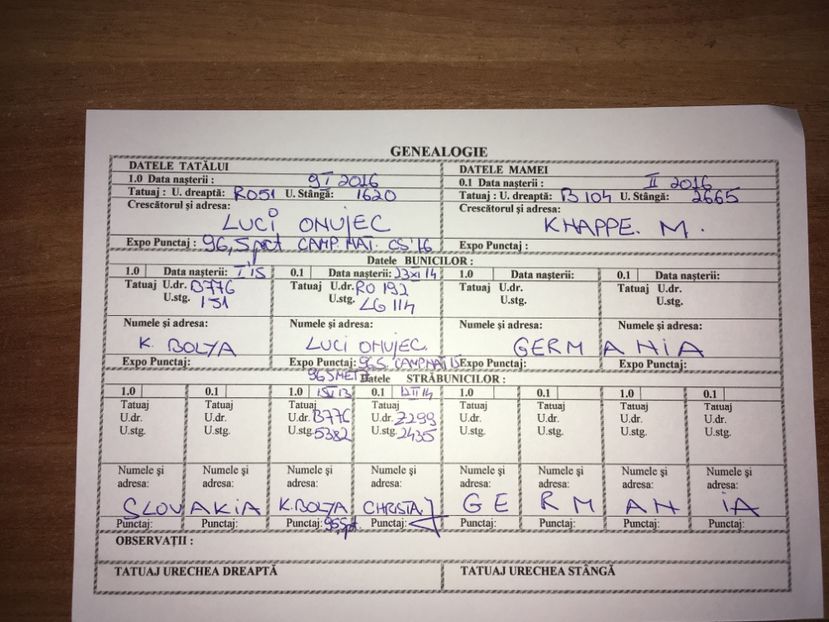 GENEALOGIE
DATELE TATĂLUI DATELE MAMEI
1.0 Data nașterii : 9 I 2016 0.1 Data nașterii : II 2016
Tatuaj : U. dreaptă: RO51 U. Stângă: 1620 Tatuaj : U. dreaptă: B 104 U. Stângă: 2665
Crescătorul și adresa: Crescătorul și adresa:
LUCI ONUJEC KHAPPE. M.
Expo Punctaj : 96,5 pct CAMP. NAT. CS'16 Expo Punctaj :
Datele BUNICILOR :
1.0 Data nașterii: I'15 0.1 Data nașterii: 23 XI 14 1.0 Data nașterii: 0.1 Data nașterii:
Tatuaj U.dr. B776 Tatuaj U.dr. RO 192 Tatuaj U.dr. Tatuaj U.dr.
U.stg. 151 U.stg. LG 114 U.stg. U.stg.
Numele și adresa: Numele și adresa: Numele și adresa: Numele și adresa:
K. BOLYA LUCI ONUJEC GERMANIA
Expo Punctaj: Expo Punctaj: 96,5 CAMP NAT Expo Punctaj: Expo Punctaj:
Datele STRĂBUNICILOR :
1.0 0.1 1.0 0.1 1.0 0.1 1.0 0.1
Tatuaj Tatuaj Tatuaj Tatuaj Tatuaj Tatuaj Tatuaj Tatuaj
U.dr. U.dr. U.dr. B776 U.dr. Z299 U.dr. U.dr. U.dr. U.dr.
U.stg. U.stg. U.stg. 5382 U.stg. 2435 U.stg. U.stg. U.stg. U.stg.
Numele și Numele și Numele și Numele și Numele și Numele și Numele și Numele și
adresa: adresa: adresa: adresa: adresa: adresa: adresa: adresa:
SLOVAKIA K. BOLYA CHRISTA J GERMANIA
Punctaj: Punctaj: Punctaj: 95,5 pt Punctaj: Punctaj: Punctaj: Punctaj: Punctaj:
OBSERVAȚII :
TATUAJ URECHEA DREAPTĂ TATUAJ URECHEA STÂNGĂ